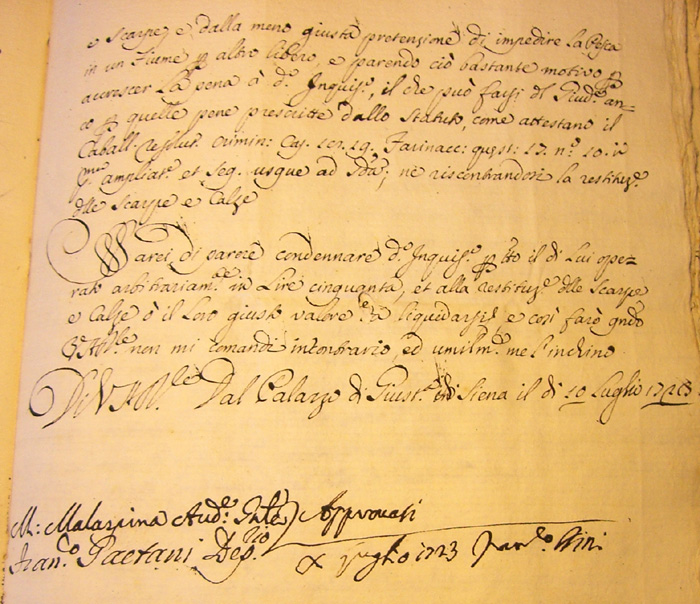 e scarpe, e dalla meno giusta pretensione di impedire la Pesca
in un Fiume p altro libero, e parendo ciò bastante motivo p
accrescer la pena à d.º Inquis.º, il che può farsi dal Giud.e an=
co p quelle pene prescritte dallo Statuto, come attestano il
Caball. resolut. crimin: Cas. 101. 19. Farinacc: quest: 17. n.º 10. in
ampliat.e et seq. usque ad; ne riscontrandosi la restituz.e
dlle scarpe e Calze
Sarei di parere condennare d.º Inquis.º p tto il di Lui ope=
rato arbitrariam.te in Lire cinquanta, et alla restituz.e dlle Scarpe
e Calze ò il Loro giusto valore da liquidarsi, e così farò qndo
non mi comandi incontrario, ed umilm.te me l'inchino
Di V. Dal Palazzo di Giust.a di Siena il di 10 Luglio 1723
M: Malaspina Aud.e Approvasi
Fran.co Gaetani Dep.
X Luglio 1723